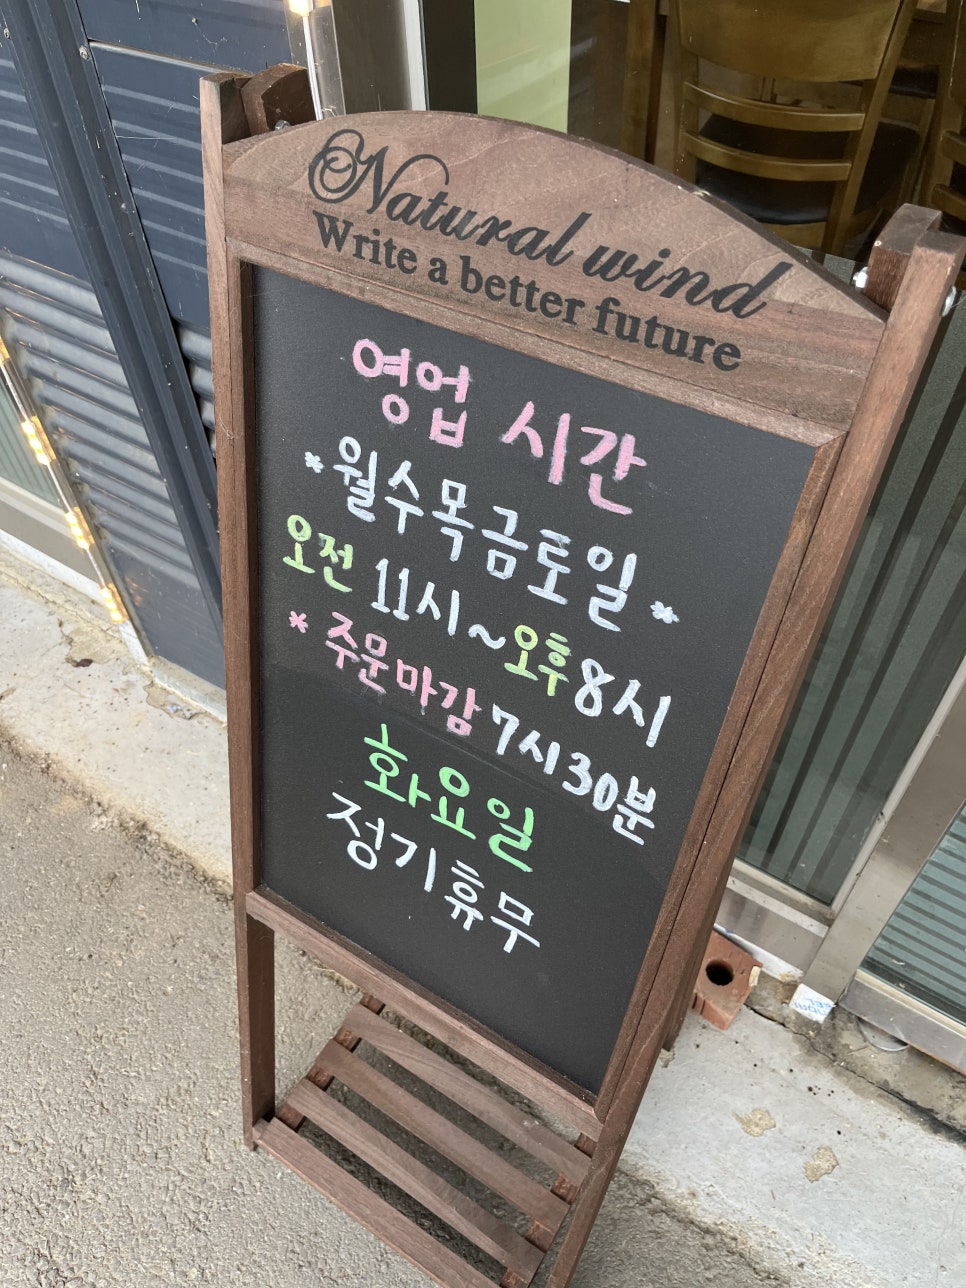 Natural wind
Write a better future
영업 시간
*월수목금토일*
오전 11시~오후 8시
*주문마감 7시30분
화요일
정기휴무